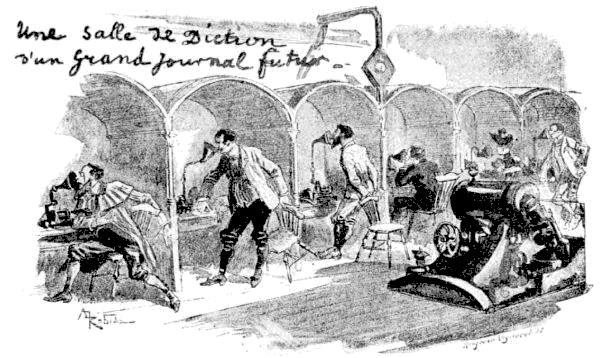 Une Salle de Diction
d'un Grand Journal futur
A Robida